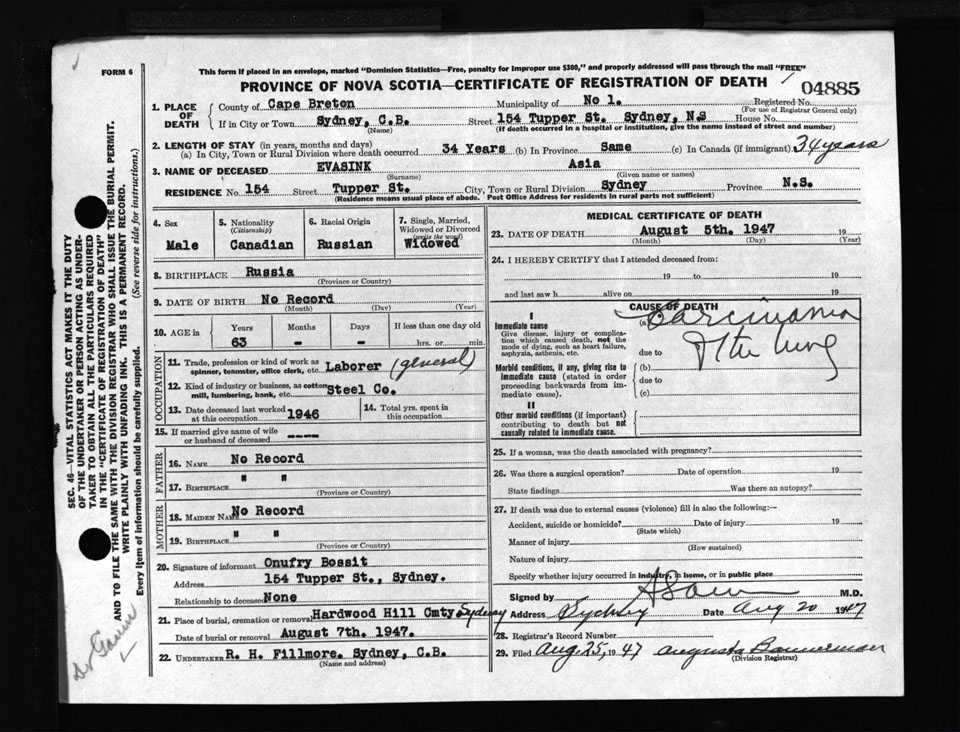 FORM 6
This form if placed in an envelope, marked "Dominion Statistics—Free, penalty for improper use $300," and properly addressed will pass through the mail "FREE"
PROVINCE OF NOVA SCOTIA—CERTIFICATE OF REGISTRATION OF DEATH
04885
1. PLACE OF DEATH
County of Cape Breton Municipality of No 1. Registered No.
(For use of Registrar General only)
If in City or Town Sydney, C.B. Street 154 Tupper St. Sydney, N.S House No.
(Name) (If death occurred in a hospital or institution, give the name instead of street and number)
2. LENGTH OF STAY (in years, months and days)
(a) In City, Town or Rural Division where death occurred 34 Years (b) In Province Same (c) In Canada (if immigrant) 34 years
3. NAME OF DECEASED EVASINK Asia
(Surname) (Given name or names)
RESIDENCE No 154 Street Tupper St. City, Town or Rural Division Sydney Province N.S.
(Residence means usual place of abode. Post Office Address for residents in rural parts not sufficient)
4. Sex
Male
5. Nationality
(Citizenship)
Canadian
6. Racial Origin
Russian
7. Single, Married, Widowed or Divorced
(write the word)
Widowed
8. BIRTHPLACE Russia
(Province or Country)
9. DATE OF BIRTH No Record
(Month) (Day) (Year)
10. AGE in Years Months Days If less than one day old
63 - - hrs. or min.
OCCUPATION
11. Trade, profession or kind of work as spinner, teamster, office clerk, etc. Laborer (general)
12. Kind of industry or business, as cotton mill, lumbering, bank, etc. Steel Co.
13. Date deceased last worked at this occupation 1946
14. Total yrs. spent in this occupation
15. If married give name of wife or husband of deceased ----
FATHER
16. NAME No Record
17. BIRTHPLACE " "
(Province or Country)
MOTHER
18. MAIDEN NAME No Record
19. BIRTHPLACE " "
(Province or Country)
20. Signature of informant Onufry Bossit
Address 154 Tupper St., Sydney.
Relationship to deceased None
21. Place of burial, cremation or removal Hardwood Hill Cmty. Sydney
Date of burial or removal August 7th. 1947.
22. UNDERTAKER R. H. Fillmore. Sydney, C.B.
(Name and address)
MEDICAL CERTIFICATE OF DEATH
23. DATE OF DEATH August 5th. 1947 19
(Month) (Day) (Year)
24. I HEREBY CERTIFY that I attended deceased from:
19 to 19
and last saw h alive on 19
CAUSE OF DEATH
I
Immediate cause
Give disease, injury or complication which caused death, not the mode of dying, such as heart failure, asphyxia, asthenia, etc.
(a) Carcinoma
due to
of the lung
Morbid conditions, if any, giving rise to immediate cause (stated in order proceeding backwards from immediate cause).
(b)
due to
(c)
II
Other morbid conditions (if important) contributing to death but not causally related to immediate cause.
25. If a woman, was the death associated with pregnancy?
26. Was there a surgical operation? Date of operation 19
State findings Was there an autopsy?
27. If death was due to external causes (violence) fill in also the following:—
Accident, suicide or homicide? Date of injury 19
(State which)
Manner of injury
(How sustained)
Nature of injury
Specify whether injury occurred in industry, in home, or in public place
Signed by M.D.
Address Sydney Date Aug 20 1947
28. Registrar's Record Number
29. Filed Aug. 25, 1947 Augusta Bannerman
(Division Registrar)
SEC. 46—VITAL STATISTICS ACT MAKES IT THE DUTY
OF THE UNDERTAKER OR PERSON ACTING AS UNDER-
TAKER TO OBTAIN ALL THE PARTICULARS REQUIRED
IN THE "CERTIFICATE OF REGISTRATION OF DEATH"
AND TO FILE THE SAME WITH THE DIVISION REGISTRAR WHO SHALL ISSUE THE BURIAL PERMIT.
WRITE PLAINLY WITH UNFADING INK. THIS IS A PERMANENT RECORD.
Every item of information should be carefully supplied. (See reverse side for instructions.)